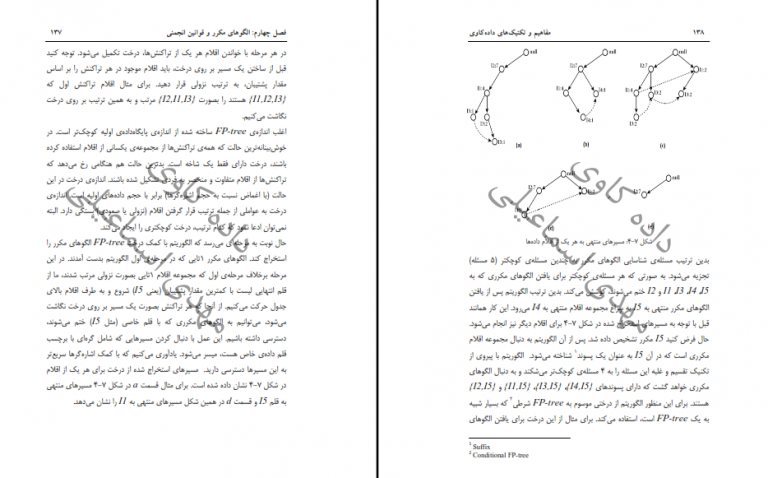 ۱۳۷ فصل چهارم: الگوهای مکرر و قوانین انجمنی
در هر مرحله با خواندن اقلام هر یک از تراکنش‌ها، درخت تکمیل می‌شود. توجه کنید
قبل از ساختن یک مسیر بر روی درخت، باید اقلام موجود در هر تراکنش را بر اساس
مقدار پشتیبان، به ترتیب نزولی قرار دهید. برای مثال اقلام تراکنش اول که
{I1,I2,I3} هستند را بصورت {I2,I1,I3} مرتب و به همین ترتیب بر روی درخت
نگاشت می‌کنیم.
اغلب اندازه‌ی FP-tree ساخته شده از اندازه‌ی پایگاه‌داده‌ی اولیه کوچک‌تر است. در
خوش‌بینانه‌ترین حالت که همه‌ی تراکنش‌ها از مجموعه‌ی یکسانی از اقلام استفاده کرده
باشند، درخت دارای فقط یک شاخه است. بدترین حالت هم هنگامی رخ می‌دهد که
تراکنش‌ها از اقلام متفاوت و منحصر به فردی تشکیل شده باشند. اندازه‌ی درخت در این
حالت (با اغماض نسبت به حجم اشاره‌گرها) برابر با حجم داده‌های اولیه است. اندازه‌ی
درخت به عواملی از جمله ترتیب قرار گرفتن اقلام (نزولی یا صعودی) بستگی دارد. البته
نمی‌توان ادعا نمود که کدام ترتیب، درخت کوچکتری را ایجاد می‌کند.
حال نوبت به مرحله‌ای می‌رسد که الگوریتم با کمک درخت FP-tree الگوهای مکرر را
استخراج کند. الگوهای مکرر ۱تایی که در مرحله‌ی اول الگوریتم بدست آمدند. در این
مرحله برخلاف مرحله‌ی اول که مجموعه اقلام ۱تایی بصورت نزولی مرتب شدند، ما از
قلم انتهایی لیست با کمترین مقدار پشتیبان (یعنی I5) شروع و به طرف اقلام بالای
جدول حرکت می‌کنیم. از آنجا که هر تراکنش بصورت یک مسیر بر روی درخت نگاشت
می‌شود، می‌توانیم به الگوهای مکرری که با قلم خاصی (مثل I5) ختم می‌شوند،
دسترسی داشته باشیم. این عمل با دنبال کردن مسیرهایی که شامل گره‌ای با برچسب
قلم داده‌ی خاص هست، میسر می‌شود. یادآوری می‌کنیم که با کمک اشاره‌گرها سریع‌تر
به این مسیرها دسترسی دارید. مسیرهای استخراج شده از درخت برای هر یک از اقلام
در شکل ۷-۴ نشان داده شده است. برای مثال قسمت a در شکل ۷-۴ مسیرهای منتهی
به قلم I5 و قسمت d در همین شکل مسیرهای منتهی به I1 را نشان می‌دهد.
داده کاوی
مهدی اسماعیلی
مفاهیم و تکنیک‌های داده‌کاوی ۱۳۸
null
I2:7
I1:4
I3:2
I5:1
(a)
null
I2:7
I1:4
(b)
null
I2:7
I1:2
I1:4
I3:2
(c)
null
null
شکل ۷-۴: مسیرهای منتهی به هر یک از اقلام داده‌ها
بدین ترتیب مسئله‌ی شناسایی الگوهای مکرر به چندین مسئله‌ی کوچکتر (۵ مسئله)
تجزیه می‌شود. به صورتی که هر مسئله‌ی کوچکتر برای یافتن الگوهای مکرری که به
I5، I4، I3، I1 و I2 ختم می‌شوند، کوشش می‌کند. بدین ترتیب الگوریتم پس از یافتن
الگوهای مکرر منتهی به I5 به سراغ مجموعه اقلام منتهی به I4 می‌رود. این کار همانند
قبل با توجه به مسیرهای استخراج شده در شکل ۷-۴ برای اقلام دیگر نیز انجام می‌شود.
حال فرض کنید I5 مکرر تشخیص داده شد. پس از آن الگوریتم به دنبال مجموعه اقلام
مکرری است که در آن I5 به عنوان یک پسوند¹ شناخته می‌شود. الگوریتم با پیروی از
تکنیک تقسیم و غلبه این مسئله را به ۴ مسئله‌ی کوچک‌تر می‌شکند و به دنبال الگوهای
مکرری خواهد گشت که دارای پسوندهای {I4,I5}، {I3,I5}، {I1,I5} و {I2,I5}
هستند. برای این منظور الگوریتم از درختی موسوم به FP-tree شرطی² که بسیار شبیه
به یک FP-tree است، استفاده می‌کند. برای مثال از این درخت برای یافتن الگوهای
¹ Suffix
² Conditional FP-tree
داده کاوی
مهدی اسماعیلی